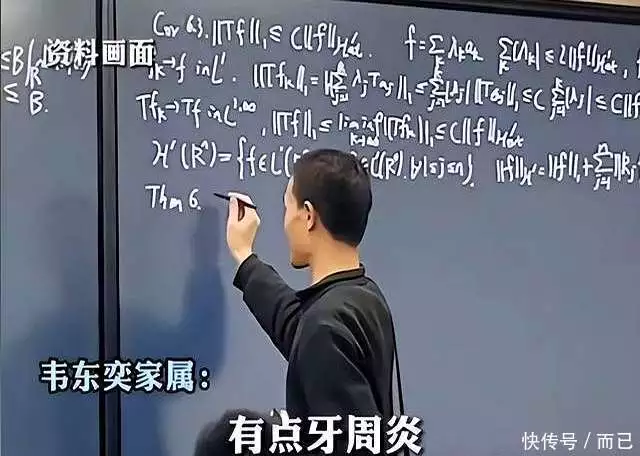 资料画面
≤B
≤ B.
Cor 6.3. ||Tf||₁ ≤ C||f||_{H¹at}. f=∑_k λ_k a_k ∑_k|λ_k| ≤ 2||f||_{H¹at},
f_k→f in L¹. ||Tf_k||₁ = ||∑_{j=1}^k λ_j Ta_j||₁ ≤ ∑_{j=1}^k |λ_j| ||Ta_j||₁ ≤ C ∑_{j=1}^k |λ_j| ≤ C||f||
Tf_k→Tf in L^{1,∞}, ||Tf||₁ ≤ liminf_{k→∞} ||Tf_k||₁ ≤ C||f||_{H¹at}
H¹(Rⁿ) = {f∈L¹(R L¹(Rⁿ), ∀1≤j≤n}. ||f||_{H¹} = ||f||₁ + ∑_{j=1}^n ||R_j
Thm 6.
韦东奕家属：
有点牙周炎
快传号/而已